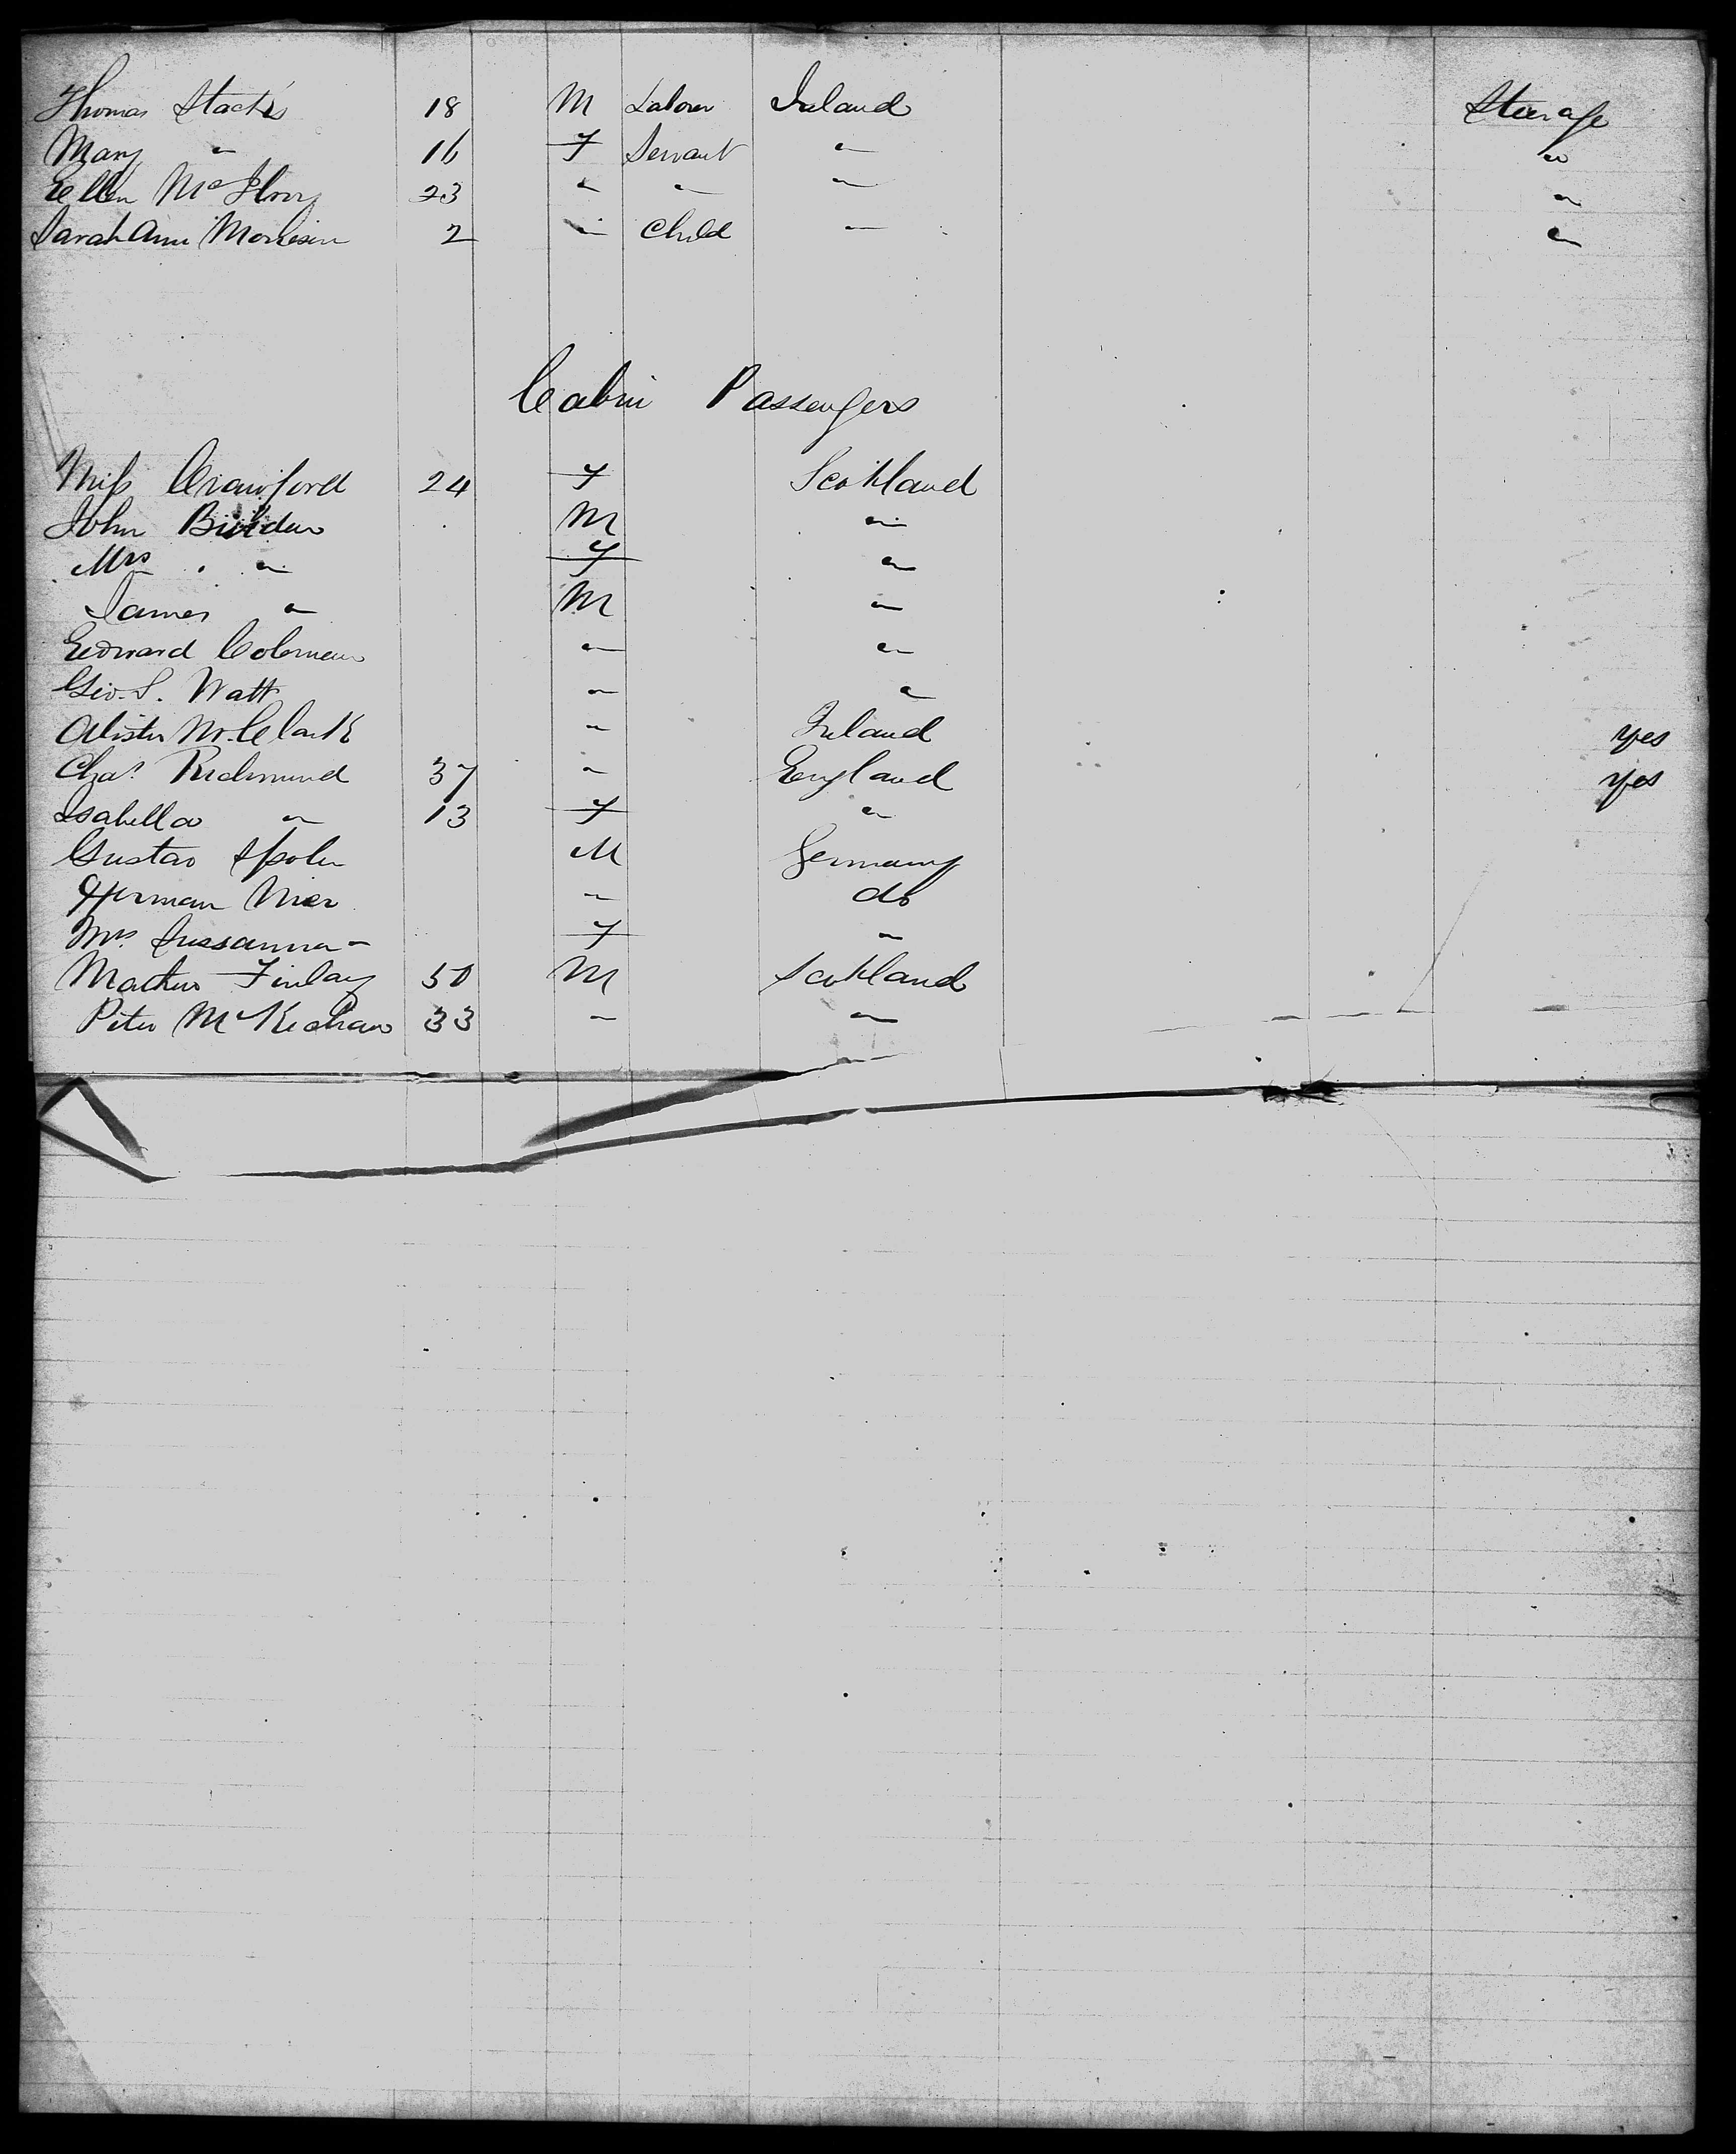 Thomas 18 M Labor Ireland Steerage
Mary " 16 F Servant " "
Ellen 23 " " " "
Sarah Ann Morrison 2 " Child " "
Cabin Passengers
Miss Crawford 24 F Scotland
John M "
Mrs " F "
James " M "
Edward Coleman " "
Geo. S. Watt " "
Alister M. Clark " Ireland yes
Chas. Richmond 37 " England yes
Isabella " 13 F "
Gustav M Germany
Herman " do
Mrs. Sussanna " F "
Mathew Finlay 50 M Scotland
Peter 33 " "